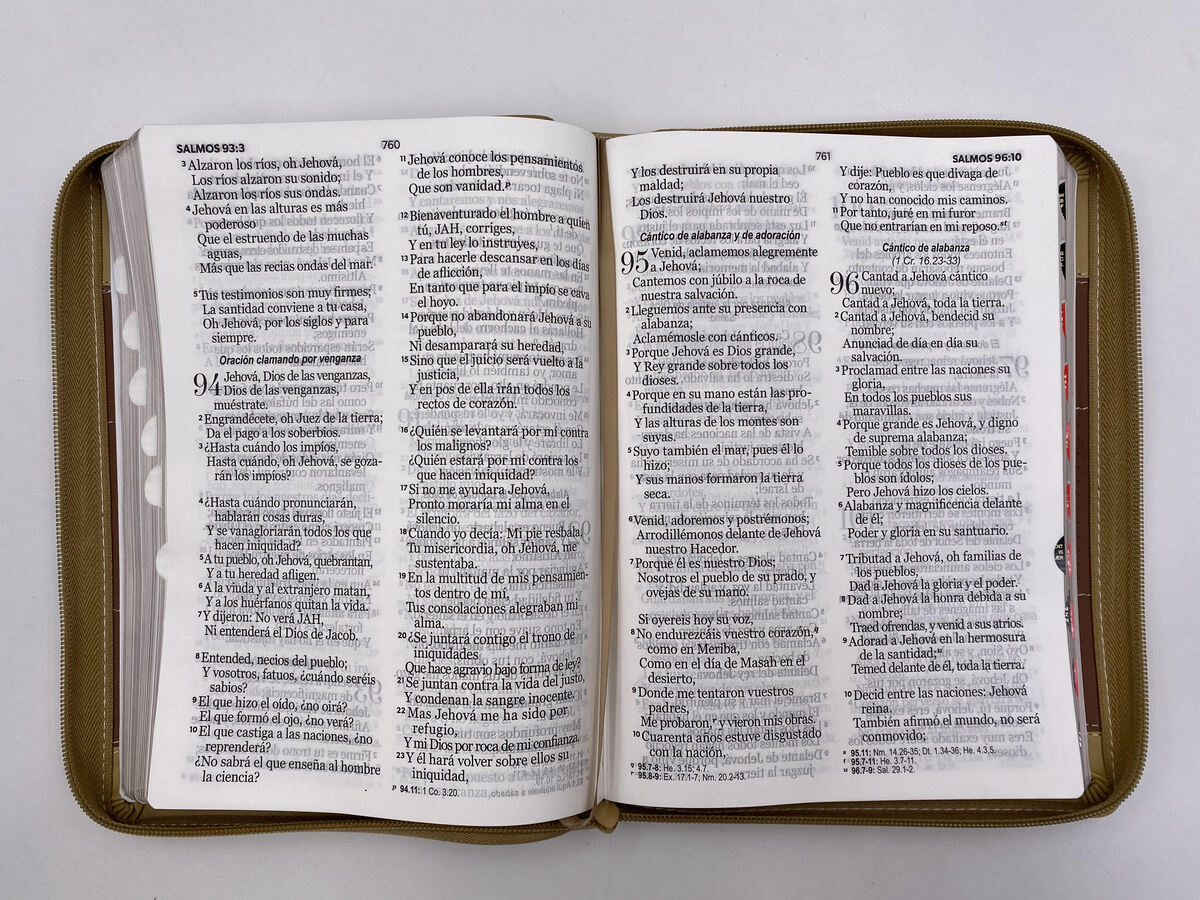 SALMOS 93:3
760
3 Alzaron los ríos, oh Jehová,
Los ríos alzaron su sonido;
Alzaron los ríos sus ondas.
4 Jehová en las alturas es más
poderoso
Que el estruendo de las muchas
aguas,
Más que las recias ondas del mar.
5 Tus testimonios son muy firmes;
La santidad conviene a tu casa,
Oh Jehová, por los siglos y para
siempre.
Oración clamando por venganza
94 Jehová, Dios de las venganzas,
Dios de las venganzas,
muéstrate.
2 Engrandécete, oh Juez de la tierra;
Da el pago a los soberbios.
3 ¿Hasta cuándo los impíos,
Hasta cuándo, oh Jehová, se goza-
rán los impíos?
4 ¿Hasta cuándo pronunciarán,
hablarán cosas duras,
Y se vanagloriarán todos los que
hacen iniquidad?
5 A tu pueblo, oh Jehová, quebrantan,
Y a tu heredad afligen.
6 A la viuda y al extranjero matan,
Y a los huérfanos quitan la vida.
7 Y dijeron: No verá JAH,
Ni entenderá el Dios de Jacob.
8 Entended, necios del pueblo;
Y vosotros, fatuos, ¿cuándo seréis
sabios?
9 El que hizo el oído, ¿no oirá?
El que formó el ojo, ¿no verá?
10 El que castiga a las naciones, ¿no
reprenderá?
¿No sabrá el que enseña al hombre
la ciencia?
11 Jehová conoce los pensamientos
de los hombres,
Que son vanidad.p
12 Bienaventurado el hombre a quien
tú, JAH, corriges,
Y en tu ley lo instruyes,
13 Para hacerle descansar en los días
de aflicción,
En tanto que para el impío se cava
el hoyo.
14 Porque no abandonará Jehová a su
pueblo,
Ni desamparará su heredad,
15 Sino que el juicio será vuelto a la
justicia,
Y en pos de ella irán todos los
rectos de corazón.
16 ¿Quién se levantará por mí contra
los malignos?
¿Quién estará por mí contra los
que hacen iniquidad?
17 Si no me ayudara Jehová,
Pronto moraría mi alma en el
silencio.
18 Cuando yo decía: Mi pie resbala,
Tu misericordia, oh Jehová, me
sustentaba.
19 En la multitud de mis pensamien-
tos dentro de mí,
Tus consolaciones alegraban mi
alma.
20 ¿Se juntará contigo el trono de
iniquidades
Que hace agravio bajo forma de ley?
21 Se juntan contra la vida del justo,
Y condenan la sangre inocente.
22 Mas Jehová me ha sido por
refugio,
Y mi Dios por roca de mi confianza.
23 Y él hará volver sobre ellos su
iniquidad,
p 94.11: 1 Co. 3.20.
761
SALMOS 96:10
Y los destruirá en su propia
maldad;
Los destruirá Jehová nuestro
Dios.
Cántico de alabanza y de adoración
95 Venid, aclamemos alegremente
a Jehová;
Cantemos con júbilo a la roca de
nuestra salvación.
2 Lleguemos ante su presencia con
alabanza;
Aclamémosle con cánticos.
3 Porque Jehová es Dios grande,
Y Rey grande sobre todos los
dioses.
4 Porque en su mano están las pro-
fundidades de la tierra,
Y las alturas de los montes son
suyas.
5 Suyo también el mar, pues él lo
hizo;
Y sus manos formaron la tierra
seca.
6 Venid, adoremos y postrémonos;
Arrodillémonos delante de Jehová
nuestro Hacedor.
7 Porque él es nuestro Dios;
Nosotros el pueblo de su prado, y
ovejas de su mano.
Si oyereis hoy su voz,
8 No endurezcáis vuestro corazón,q
como en Meriba,
Como en el día de Masah en el
desierto,
9 Donde me tentaron vuestros
padres,
Me probaron,r y vieron mis obras.
10 Cuarenta años estuve disgustado
con la nación,
q 95.7-8: He. 3.15; 4.7.
r 95.8-9: Ex. 17.1-7; Nm. 20.2-13.
Y dije: Pueblo es que divaga de
corazón,
Y no han conocido mis caminos.
11 Por tanto, juré en mi furor
Que no entrarían en mi reposo.s,t
Cántico de alabanza
(1 Cr. 16.23-33)
96 Cantad a Jehová cántico
nuevo;
Cantad a Jehová, toda la tierra.
2 Cantad a Jehová, bendecid su
nombre;
Anunciad de día en día su
salvación.
3 Proclamad entre las naciones su
gloria,
En todos los pueblos sus
maravillas.
4 Porque grande es Jehová, y digno
de suprema alabanza;
Temible sobre todos los dioses.
5 Porque todos los dioses de los pue-
blos son ídolos;
Pero Jehová hizo los cielos.
6 Alabanza y magnificencia delante
de él;
Poder y gloria en su santuario.
7 Tributad a Jehová, oh familias de
los pueblos,
Dad a Jehová la gloria y el poder.
8 Dad a Jehová la honra debida a su
nombre;
Traed ofrendas, y venid a sus atrios.
9 Adorad a Jehová en la hermosura
de la santidad;u
Temed delante de él, toda la tierra.
10 Decid entre las naciones: Jehová
reina.
También afirmó el mundo, no será
conmovido;
s 95.11: Nm. 14.26-35; Dt. 1.34-36; He. 4.3,5.
t 95.7-11: He. 3.7-11.
u 96.7-9: Sal. 29.1-2.